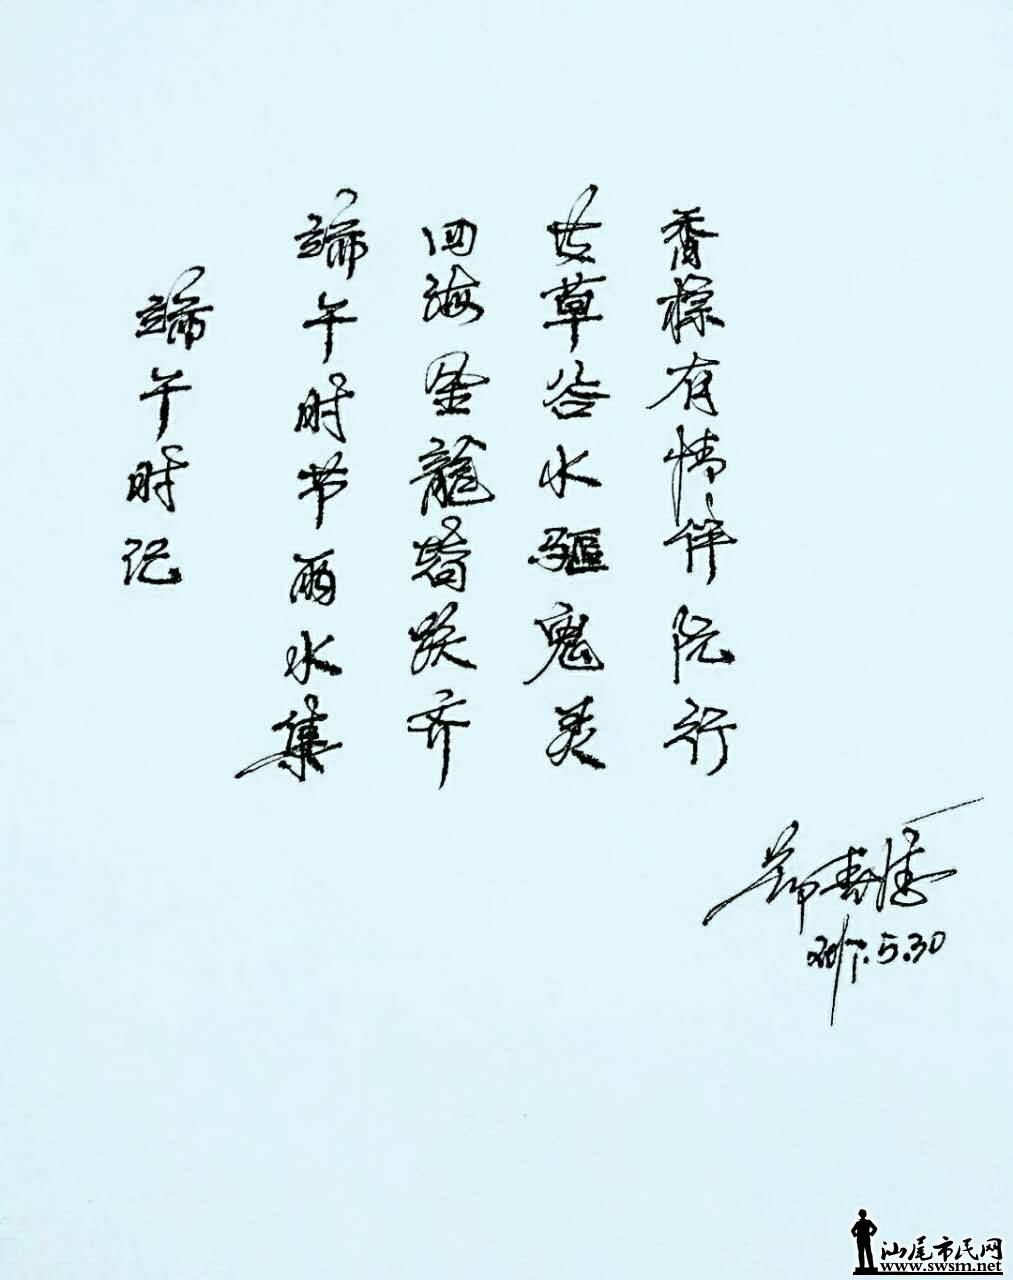 端午时记
端午时节雨水集
四海金龍跃齐
草谷水驱鬼灵
香粽有情伴阮行
郑
2017.5.30
汕尾市民网
www.swsm.net